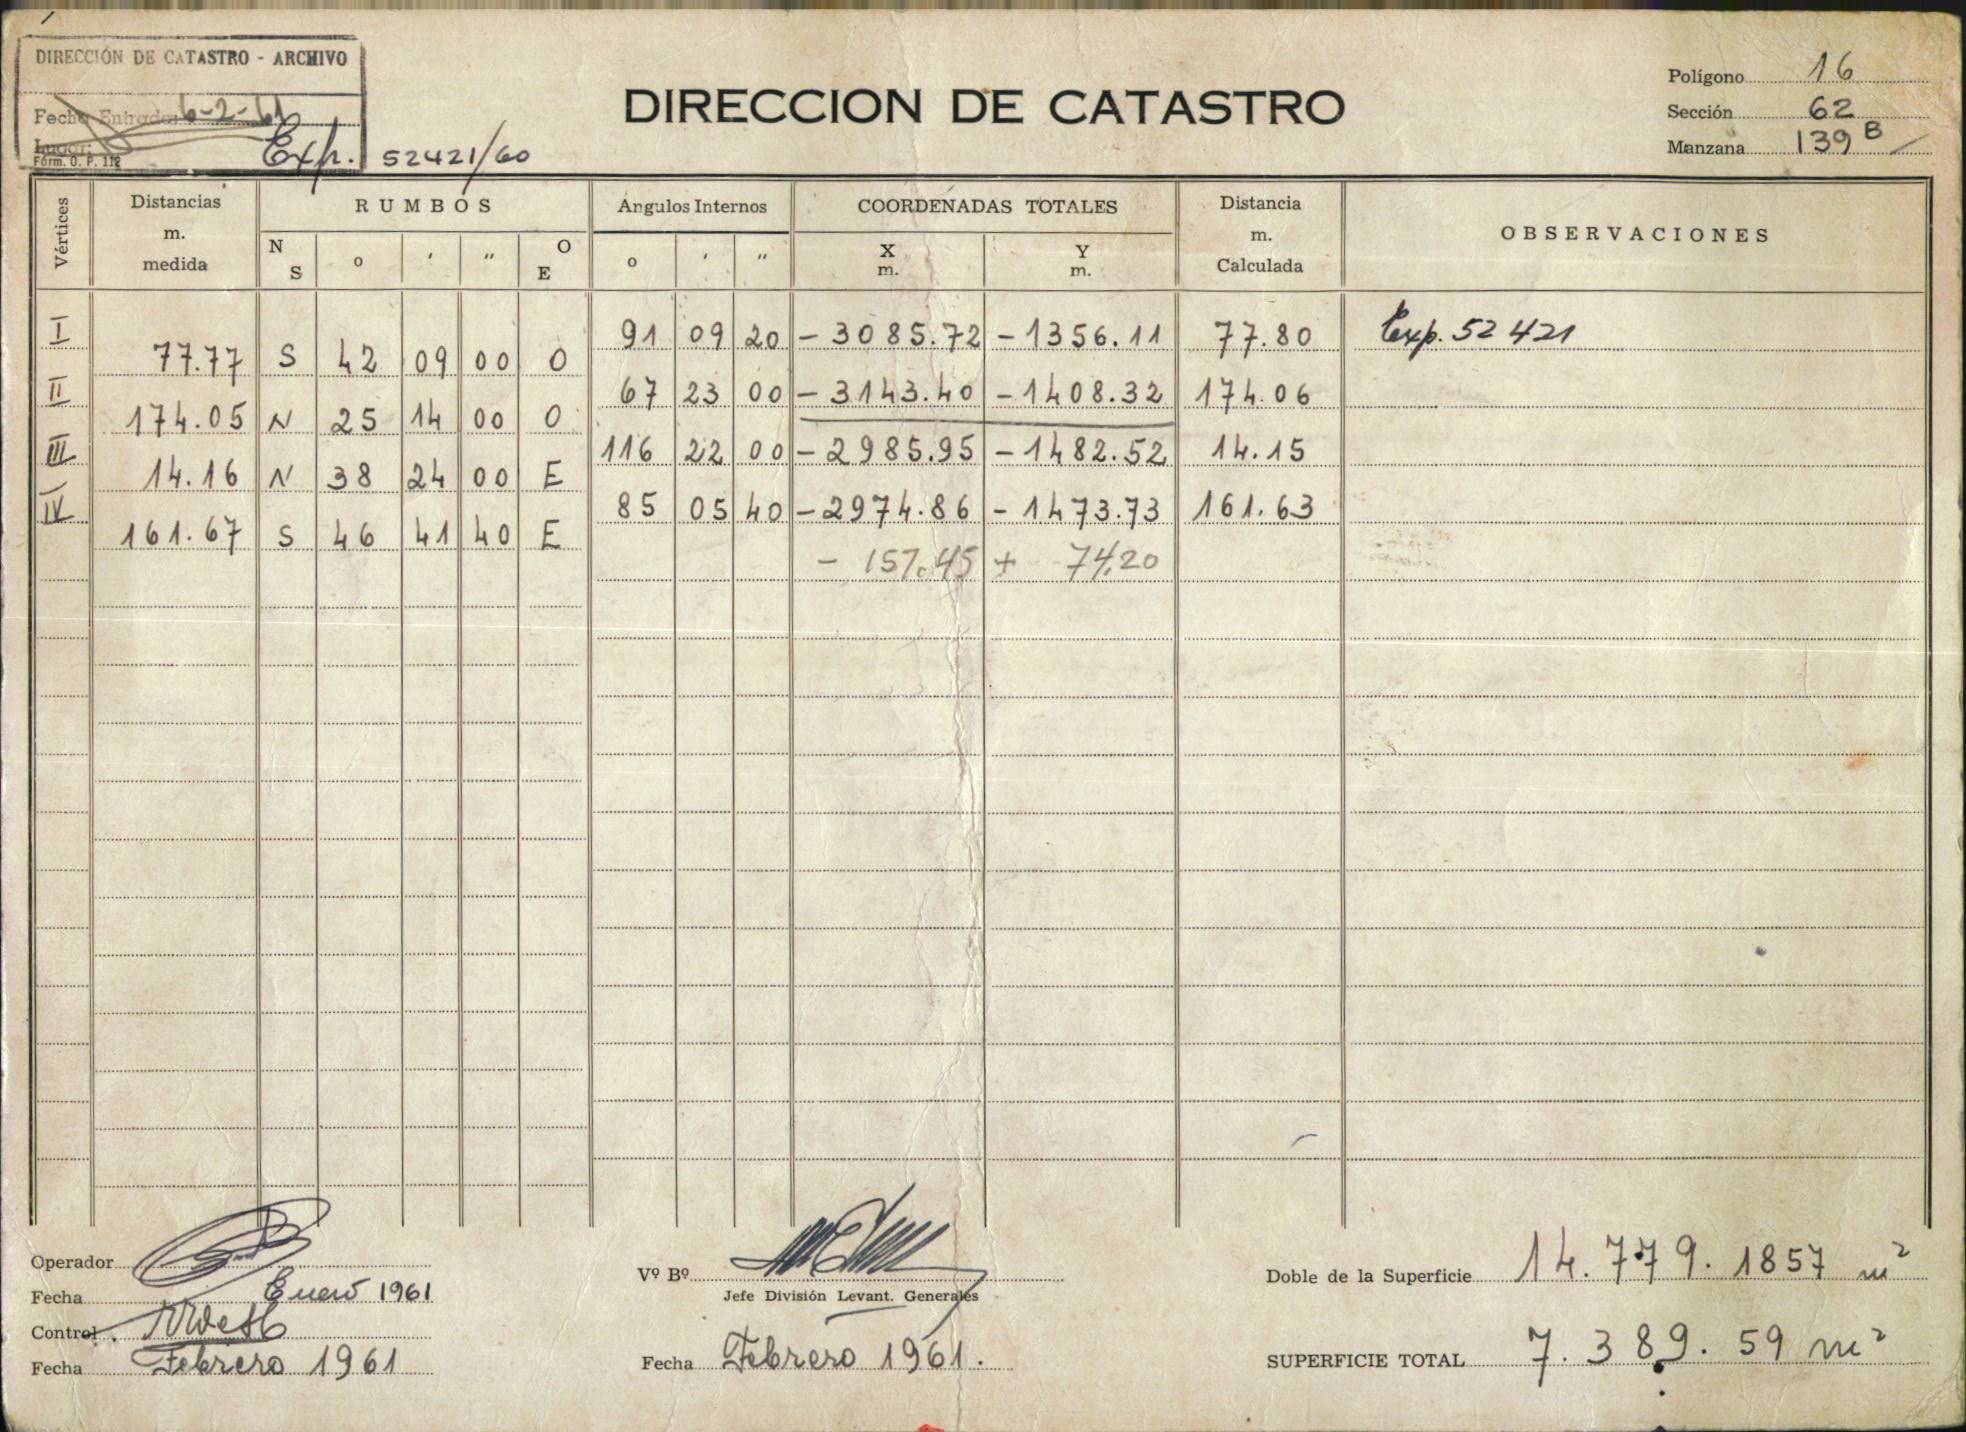 DIRECCIÓN DE CATASTRO - ARCHIVO
Fecha Entrada: 6-2-61
Lugar:
Form. O. P. 112
Exp. 52421/60
DIRECCION DE CATASTRO
Polígono 16
Sección 62
Manzana 139 B
Vértices
Distancias m. medida
RUMBOS
N S o ' " O E
Angulos Internos
o ' "
COORDENADAS TOTALES
X m. Y m.
Distancia m. Calculada
OBSERVACIONES
I 91 09 20 - 3085.72 - 1356.11 77.80 Exp. 52421
77.77 S 42 09 00 O
II 67 23 00 - 3143.40 - 1408.32 174.06
174.05 N 25 14 00 O
III 116 22 00 - 2985.95 - 1482.52 14.15
14.16 N 38 24 00 E
IV 85 05 40 - 2974.86 - 1473.73 161.63
161.67 S 46 41 40 E
- 157.45 + 74.20
Operador
Fecha Enero 1961
Control
Fecha Febrero 1961
Vº Bº
Jefe División Levant. Generales
Fecha Febrero 1961.
Doble de la Superficie 14.779.1857 m²
SUPERFICIE TOTAL 7.389.59 m²